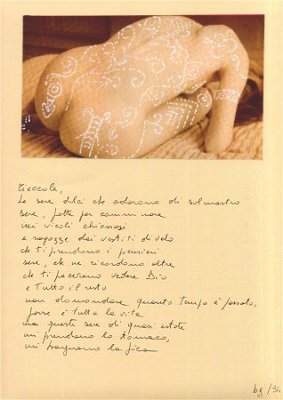 Piccola,
le sere dolci che odorano di salmastro
sere, fatte per camminare
nei vicoli chiassosi
e ragazze dai vestiti di velo
che ti prendono i pensieri
sere, che ne ricordano altre
che ti facevano vedere Dio
e tutto il resto
non domandare quanto tempo è passato,
forse è tutta la vita
ma queste sere di quasi estate
mi prendono lo stomaco,
mi bagnano la fica
bg/94